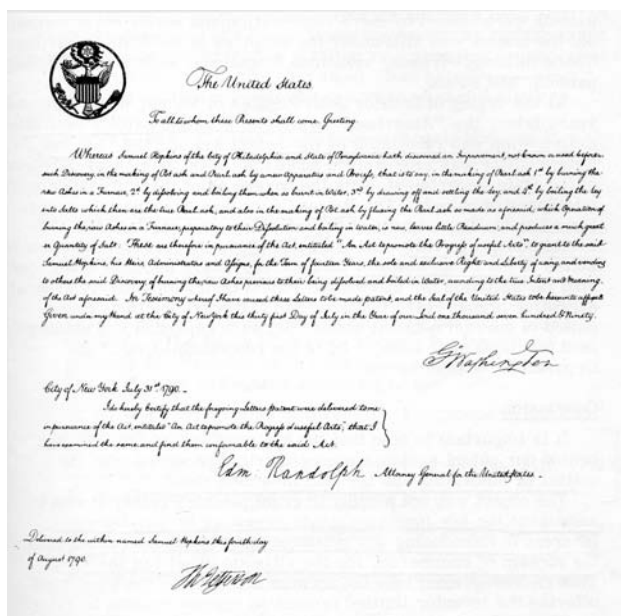 The United States
To all to whom these Presents shall come, Greeting.
Whereas Samuel Hopkins of the City of Philadelphia and State of Pensylvania hath discovered an Improvement, not known or used before
such Discovery, in the making of Pot ash and Pearl ash by a new Apparatus and Process, that is to say, in the making of Pearl ash 1st by burning the
raw Ashes in a Furnace, 2d by dissolving and boiling them when so burnt in Water, 3rd by drawing off and settling the ley, and 4th by boiling the ley
into Salts which then are the true Pearl ash, and also in the making of Pot ash by fluxing the Pearl ash so made as aforesaid; which Operation of
burning the raw Ashes in a Furnace, preparatory to their Dissolution and boiling in Water, is new, leaves little Residuum; and produces a much greater
Quantity of Salt: These are therefore in pursuance of the Act, entitled "An Act to promote the Progress of useful Arts", to grant to the said
Samuel Hopkins, his Heirs, Administrators and Assigns, for the Term of fourteen Years, the sole and exclusive Right and Liberty of using and vending
to others the said Discovery, of burning the raw Ashes previous to their being dissolved and boiled in Water, according to the true Intent and Meaning
of the Act aforesaid. In Testimony whereof I have caused these Letters to be made patent, and the Seal of the United States to be hereunto affixed
Given under my Hand at the City of New York this thirty first Day of July in the Year of our Lord one thousand seven hundred & Ninety.
G Washington
City of New York July 31st 1790. -
I do hereby Certify that the foregoing Letters patent were delivered to me
in pursuance of the Act, entitled "An Act to promote the Progress of useful Arts"; that I
have examined the same, and find them conformable to the said Act.
Edm. Randolph Attorney General for the United States.
Delivered to the within named Samuel Hopkins this fourth day
of August 1790.
Th Jefferson